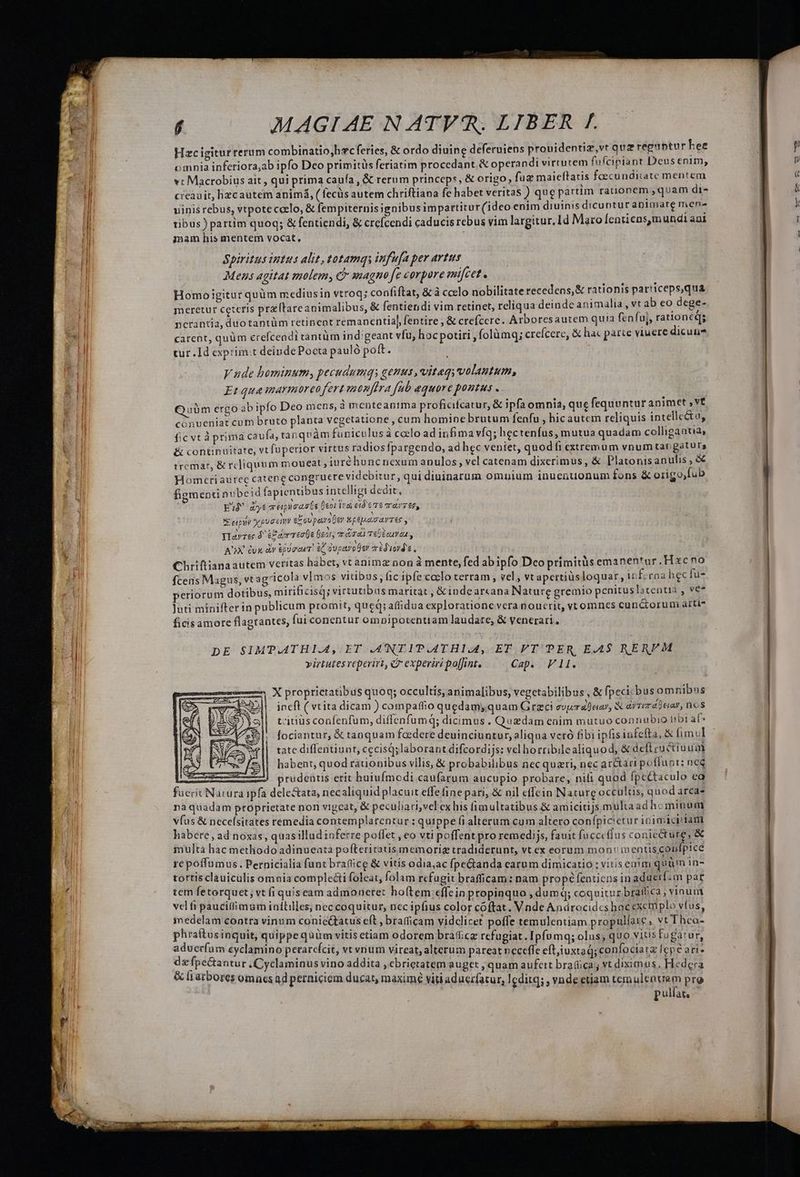 6 MAGIAE NATVR. LIBER I.
Hæc igitur rerum combinatio, hæc series, & ordo diuine deseruiens prouidentiæ, vt quæ reguntur hec
omnia inferiora, ab ipso Deo primitùs seriatim procedant & operandi virtutem suscipiant Deus enim,
vt Macrobius ait, qui prima causa, & rerum princeps, & origo, suæ maiestatis fœcunditate mentem
creauit, hæc autem animā, (secùs autem christiana se habet veritas) que partim rationem, quam di-
uinis rebus, vtpote cœlo, & sempiternis ignibus impartitur (ideo enim diuinis dicuntur animate men-
tibus) partim quoq; & sentiendi, & crescendi caducis rebus vim largitur. Id Maro sentiens, mundi ani
mam his mentem vocat.
Spiritus intus alit, totamq; infusa per artus
Mens agitat molem, & magno se corpore miscet.
Homo igitur quùm medius in vtroq; consistat, & à cœlo nobilitate recedens, & rationis particeps, qua
meretur ceteris præstare animalibus, & sentiendi vim retinet, reliqua deinde animalia, vt ab eo dege-
nerantia, duo tantùm retinent remanentia, sentire, & crescere. Arbores autem quia sensu, rationeq;
carent, quùm crescendi tantùm indigeant vsu, hoc potiri, solùmq; crescere, & hac parte viuere dicun-
tur. Id exprimit deinde Poeta pauló post.
Vnde hominum, pecudumq; genus, vitaq; volantum,
Et quæ marmoreo fert monstra sub æquore pontus.
Quùm ergo ab ipso Deo mens, à mente anima proficiscatur, & ipsa omnia, que sequuntur animet, vt
conueniat cum bruto planta vegetatione, cum homine brutum sensu, hic autem reliquis intellectu,
sic vt à prima causa, tanquàm funiculus à cœlo ad infima vsq; hec tensus, mutua quadam colligantia,
& continuitate, vt superior virtus radios spargendo, ad hec veniet, quod si extremum vnum tangatur,
tremat, & reliquum moueat, iurè hunc nexum anulos, vel catenam dixerimus, & Platonis anulis, &
Homeri auree catene congruere videbitur, qui diuinarum omnium inuentionum fons & origo, sub
figmenti nube id sapientibus intelligi dedit,
Christiana autem veritas habet, vt animæ non à mente, sed ab ipso Deo primitùs emanentur. Hæc no
scens Magus, vt agricola vlmos vitibus, sic ipse cœlo terram, vel, vt apertiùs loquar, inferna hec su-
periorum dotibus, mirificisq; virtutibus maritat, & inde arcana Nature gremio penitus latentia, ve-
luti minister in publicum promit, queq; assidua exploratione vera nouerit, vt omnes cunctorum arti-
ficis amore flagrantes, sui conentur omnipotentiam laudare, & venerari.
DE SIMPATHIA, ET ANTIPATHIA, ET VT PER EAS RERVM
virtutes reperiri, & experiri possint. Cap. VII.
EX proprietatibus quoq; occultis, animalibus, vegetabilibus, & speciebus omnibus
inest (vt ita dicam) compassio quedam, quam Græci συμπάθειαν, & ἀντιπάθειαν, nos
tritiùs consensum, dissensumq; dicimus. Quædam enim mutuo connubio sibi as-
sociantur, & tanquam fœdere deuinciuntur, aliqua verò sibi ipsis infesta, & simul
tate dissentiunt, cecisq; laborant discordijs: vel horribile aliquod, & destructiuum
habent, quod rationibus vllis, & probabilibus nec quæri, nec arctari possunt: neq
prudentis erit huiusmodi causarum aucupio probare, nisi quòd spectaculo eo
fuerit Natura ipsa delectata, nec aliquid placuit esse sine pari, & nil esse in Nature occultis, quod arca-
na quadam proprietate non vigeat, & peculiari, vel ex his simultatibus & amicitijs multa ad hominum
vsus & necessitates remedia contemplarentur: quippe si alterum cum altero conspicietur inimicitiam
habere, ad noxas, quas illud inferre posset, eo vti possent pro remedijs, fauit successus coniecture, &
multa hac methodo adinuenta posteritatis memoriæ tradiderunt, vt ex eorum monumentis conspice
re possumus. Pernicialia sunt brassice & vitis odia, ac spectanda earum dimicatio: vitis enim quùm in-
tortis clauiculis omnia complecti soleat, solam refugit brassicam: nam propè sentiens in aduersam par
tem se torquet; vt si quis eam admoneret hostem esse in propinquo, dumq; coquitur brassica, vinum
vel si paucissimum instilles, nec coquitur, nec ipsius color côstat. Vnde Androcides hoc exemplo vsus,
medelam contra vinum coniectatus est, brassicam videlicet posse temulentiam propulsare, vt Theo-
phrastus inquit, quippe quùm vitis etiam odorem brassicæ refugiat. Ipsumq; olus, quo vitis fugatur,
aduersum cyclamino perarescit, vt vnum vireat, alterum pareat necesse est, iuxtaq; consociatæ sepe ari-
dæ spectantur. Cyclaminus vino addita, ebrietatem auget, quam aufert brassica, vt diximus. Hedera
& si arbores omnes ad perniciem ducat, maximè viti aduersatur, leditq;, vnde etiam temulentiam pro
pulsat,